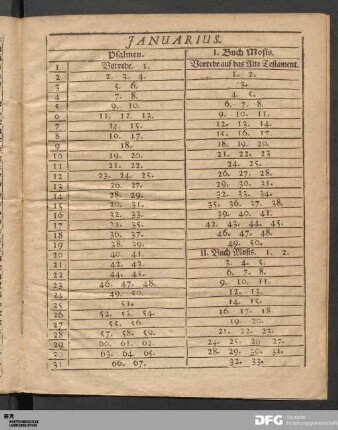 JANUARIUS.
Psalmen. I. Buch Mosis.
1 Vorrede. 1. Vorrede auf das Alte Testament.
2 2. 3. 4. 1. 2.
3 5. 6. 3.
4 7. 8. 4. 5.
5 9. 10. 6. 7. 8.
6 11. 12. 13. 9. 10. 11.
7 14. 15. 12. 13. 14.
8 16. 17. 15. 16. 17.
9 18. 18. 19. 20.
10 19. 20. 21. 22. 23
11 21. 22. 24. 25.
12 23. 24. 25. 26. 27. 28.
13 26. 27. 29. 30. 31.
14 28. 29. 32. 33. 34.
15 30. 31. 35. 36. 37. 38.
16 32. 33. 39. 40. 41.
17 34. 35. 42. 43. 44. 45.
18 36. 37. 46. 47. 48.
19 38. 39. 49. 50.
20 40. 41. II. Buch Mosis. 1. 2.
21 42. 43. 3. 4. 5.
22 44. 45. 6. 7. 8.
23 46. 47. 48. 9. 10. 11.
24 49. 50. 12. 13.
25 51. 14. 15.
26 52. 53. 54. 16. 17. 18.
27 55. 56. 19. 20.
28 57. 58. 59. 21. 22. 22.
29 60. 61. 62. 24. 25. 26. 27.
30 63. 64. 65. 28. 29. 30. 31.
31 66. 67. 32. 33.
DFG Deutsche
Forschungsgemeinschaft